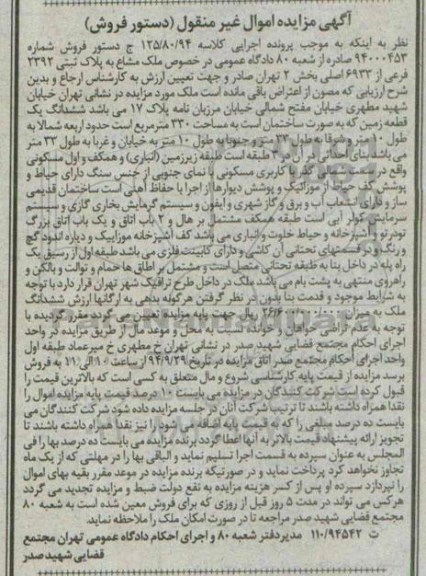 آگهی مزایده اموال غیر منقول (دستور فروش)
نظر به اینکه به موجب پرونده اجرایی کلاسه ۱۲۵/۸۰/۹۴ ج دستور فروش شماره
۹۴۰۰۰۴۵۳ صادره از شعبه ۸۰ دادگاه عمومی در خصوص ملک مشاع به پلاک ثبتی ۲۳۹۲
فرعی از ۶۹۳۳ اصلی بخش ۲ تهران صادر و جهت تعیین ارزش به کارشناس ارجاع و بدین
شرح ارزیابی که مصون از اعتراض باقی مانده است ملک مورد مزایده در نشانی تهران خیابان
شهید مطهری خیابان مفتح شمالی خیابان مرزبان نامه پلاک ۱۷ می باشد ششدانگ یک
قطعه زمین که به صورت ساختمان است به مساحت ۳۳۰ مترمربع است حدود اربعه شمالا به
طول ۱۰ متر و شرقا به طول ۳۳ متر و جنوبا به طول ۱۰ متر به خیابان و غربا به طول ۳۳ متر
می باشد بنای احداثی در آن در ۳ طبقه است طبقه زیرزمین (انباری) و همکف و اول مسکونی
واقع در قسمت شمالی گذر با کاربری مسکونی با نمای جنوبی از جنس سنگ دارای حیاط و
پوشش کف حیاط از موزائیک و پوشش دیوارها از اجر با حفاظ آهنی است ساختمان قدیمی
ساز و دارای انشعاب آب و برق و گاز شهری و آیفون و سیستم گرمایش بخاری گازی و سیستم
سرمایش کولر آبی است طبقه همکف مشتمل بر هال و ۲ باب اتاق و یک باب اتاق بزرگ
تودرتو و آشپزخانه و حیاط خلوت و انباری می باشد کف آشپزخانه موزاییک و دیواره اندود گچ
و رنگ و در قسمتهای تحتانی آن کاشی و دارای کابینت فلزی می باشد طبقه اول از طریق یک
راه پله در داخل بنا به طبقه تحتانی متصل است و مشتمل بر اطاق ها حمام و توالت و بالکن و
راهروی منتهی به پشت بام می باشد ملک در داخل طرح ترافیک شهر تهران قرار دارد با توجه
به شرایط موجود و قدمت بنا بدون در نظر گرفتن هرگونه بدهی به ارگانها ارزش ششدانگ
ملک به میزان ریال جهت پایه مزایده تعیین می گردد مقرر گردیده با
توجه به عدم تراضی خواهان و خوانده نسبت به محل و موعد مال از طریق مزایده در واحد
اجرای احکام مجتمع قضایی شهید صدر در نشانی تهران خ مطهری خ میرعماد طبقه اول
واحد اجرای احکام مجتمع صدر اتاق مزایده در تاریخ ۹۴/۹/۲۹ از ساعت ۱۰ الی ۱۱ به فروش
برسد مزایده از قیمت پایه کارشناسی شروع و مال متعلق به کسی است که بالاترین قیمت را
قبول کرده است شرکت کنندگان در مزایده می بایست ۱۰ درصد قیمت پایه مزایده اموال را
نقدا همراه داشته باشند تا ترتیب شرکت آنان در جلسه مزایده داده شود شرکت کنندگان می
بایست ده درصد مبلغی را که به قیمت پایه اضافه می شود را نیز نقدا همراه داشته باشند تا
تجویز ارائه پیشنهاد قیمت بالاتر به آنها اعطا گردد برنده مزایده می بایست ده درصد بها را فی
المجلس به عنوان سپرده به قسمت اجرا تسلیم نماید و الباقی بها را در مهلتی که از یک ماه
تجاوز نخواهد کرد پرداخت نماید و در صورتیکه برنده مزایده در موعد مقرر بقیه بهای اموال
را نپردازد سپرده او پس از کسر هزینه مزایده به نفع دولت ضبط و مزایده تجدید می گردد
هرکس می تواند در مدت ۵ روز قبل از روزی که برای فروش معین شده است به شعبه ۸۰
مجتمع قضایی شهید صدر مراجعه تا در صورت امکان ملک را ملاحظه نماید.
ت ۱۱۰/۹۴۵۴۲ مدیر دفتر شعبه ۸۰ و اجرای احکام دادگاه عمومی تهران مجتمع
قضایی شهید صدر